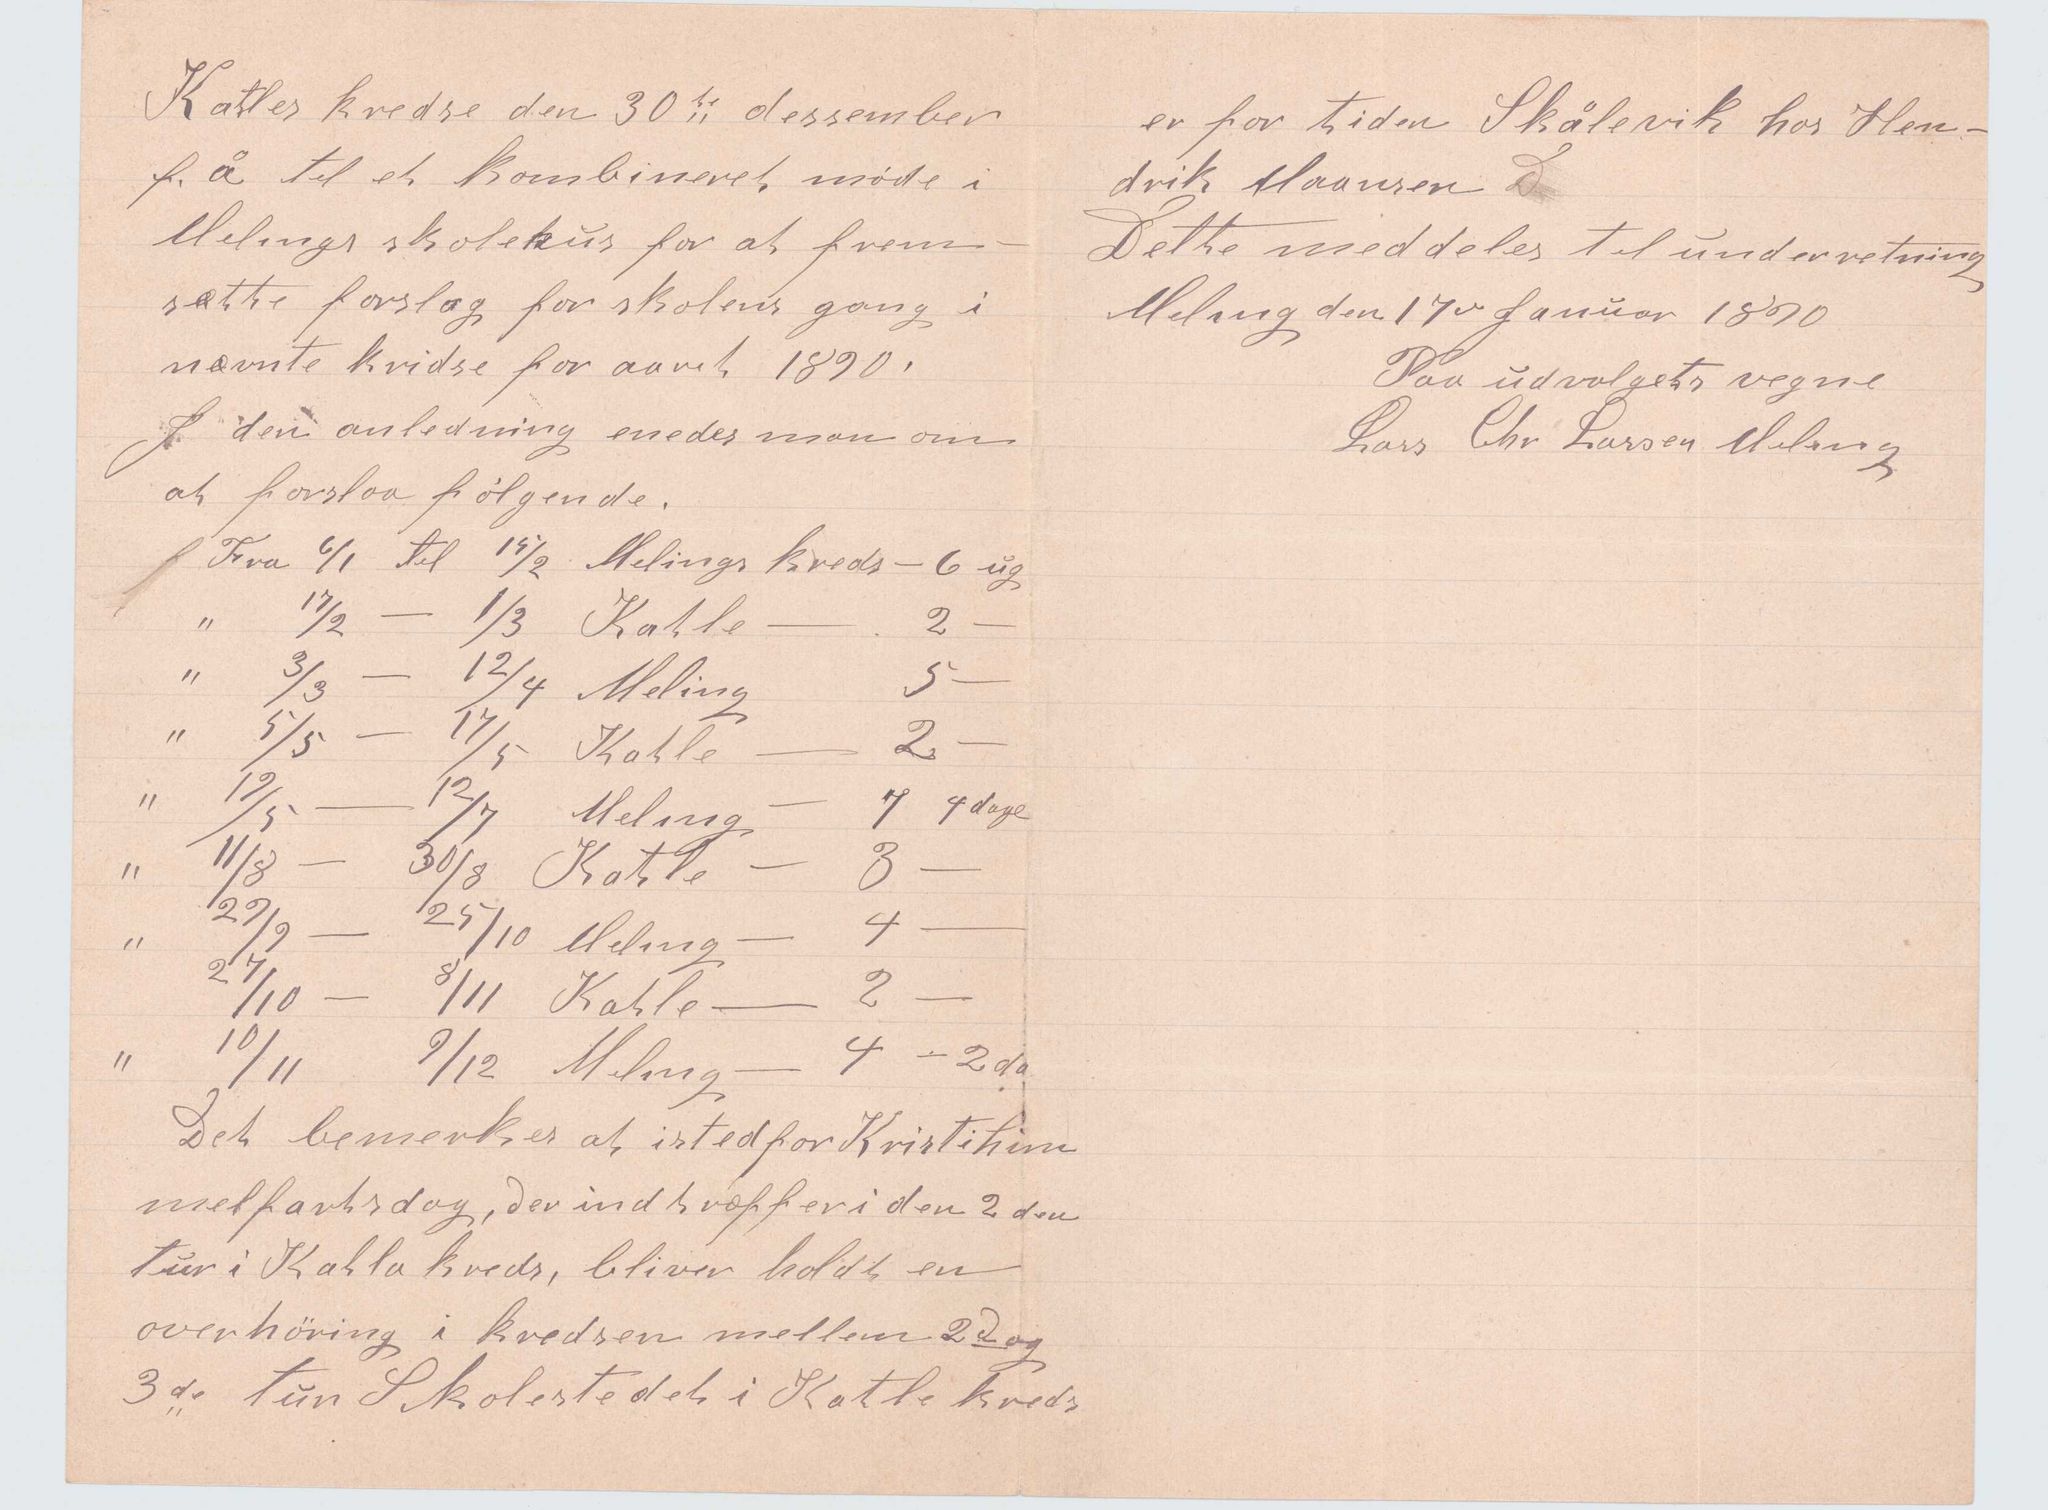 Katles kredse den 30te dessember
f. å til et kombineret møde i
Melings skolehus for at frem-
sætte forslag for skolens gang i
nævnte kridse for aaret 1890.
I den anledning enedes man om
at forslaa følgende.
Fra 6/1 til 15/2 Melings kreds - 6 ug
" 17/2 — 1/3 Katle — 2 —
" 3/3 — 12/4 Meling 5 —
" 5/5 — 17/5 Katle — 2 —
" 19/5 — 12/7 Meling — 7 4 dage
" 11/8 — 30/8 Katle — 3 —
" 29/9 — 25/10 Meling — 4 —
27/10 — 8/11 Katle — 2 —
" 10/11 9/12 Meling — 4 - 2 da
Det bemerkes at istedfor Kristihim
melfartsdag, der indtræffer i den 2 den
tur i Katla kreds, bliver holdt en
overhöring i kredsen mellem 2d og
3de tur Skolestedet i Katle kreds
er for tiden Skålevik hos Hen-
drik Maansen D
Dette meddeles til underretning
Meling den 17 Januar 1890
Paa udvalgets vegne
Lars Chr Larsen Meling